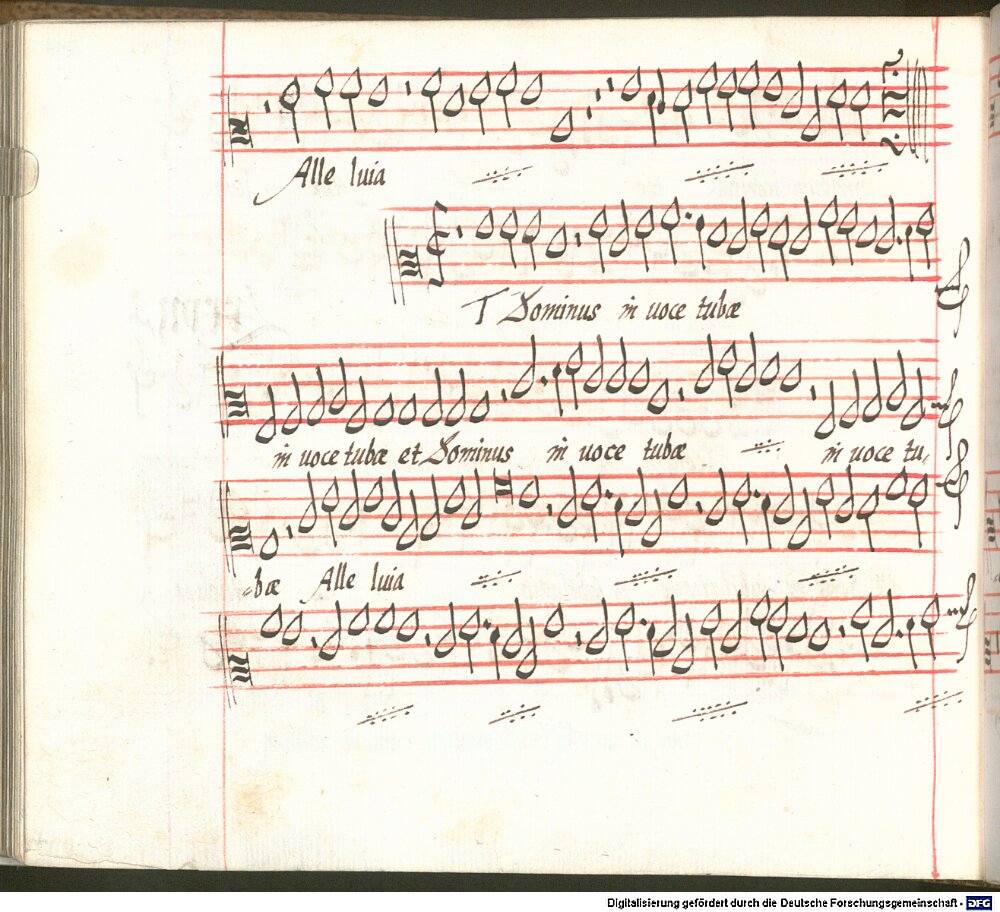 Alle luia
T Dominus in uoce tubæ
in uoce tubæ et Dominus in uoce tubæ in uoce tu,
-bæ Alle luia
Digitalisierung gefördert durch die Deutsche Forschungsgemeinschaft - DFG